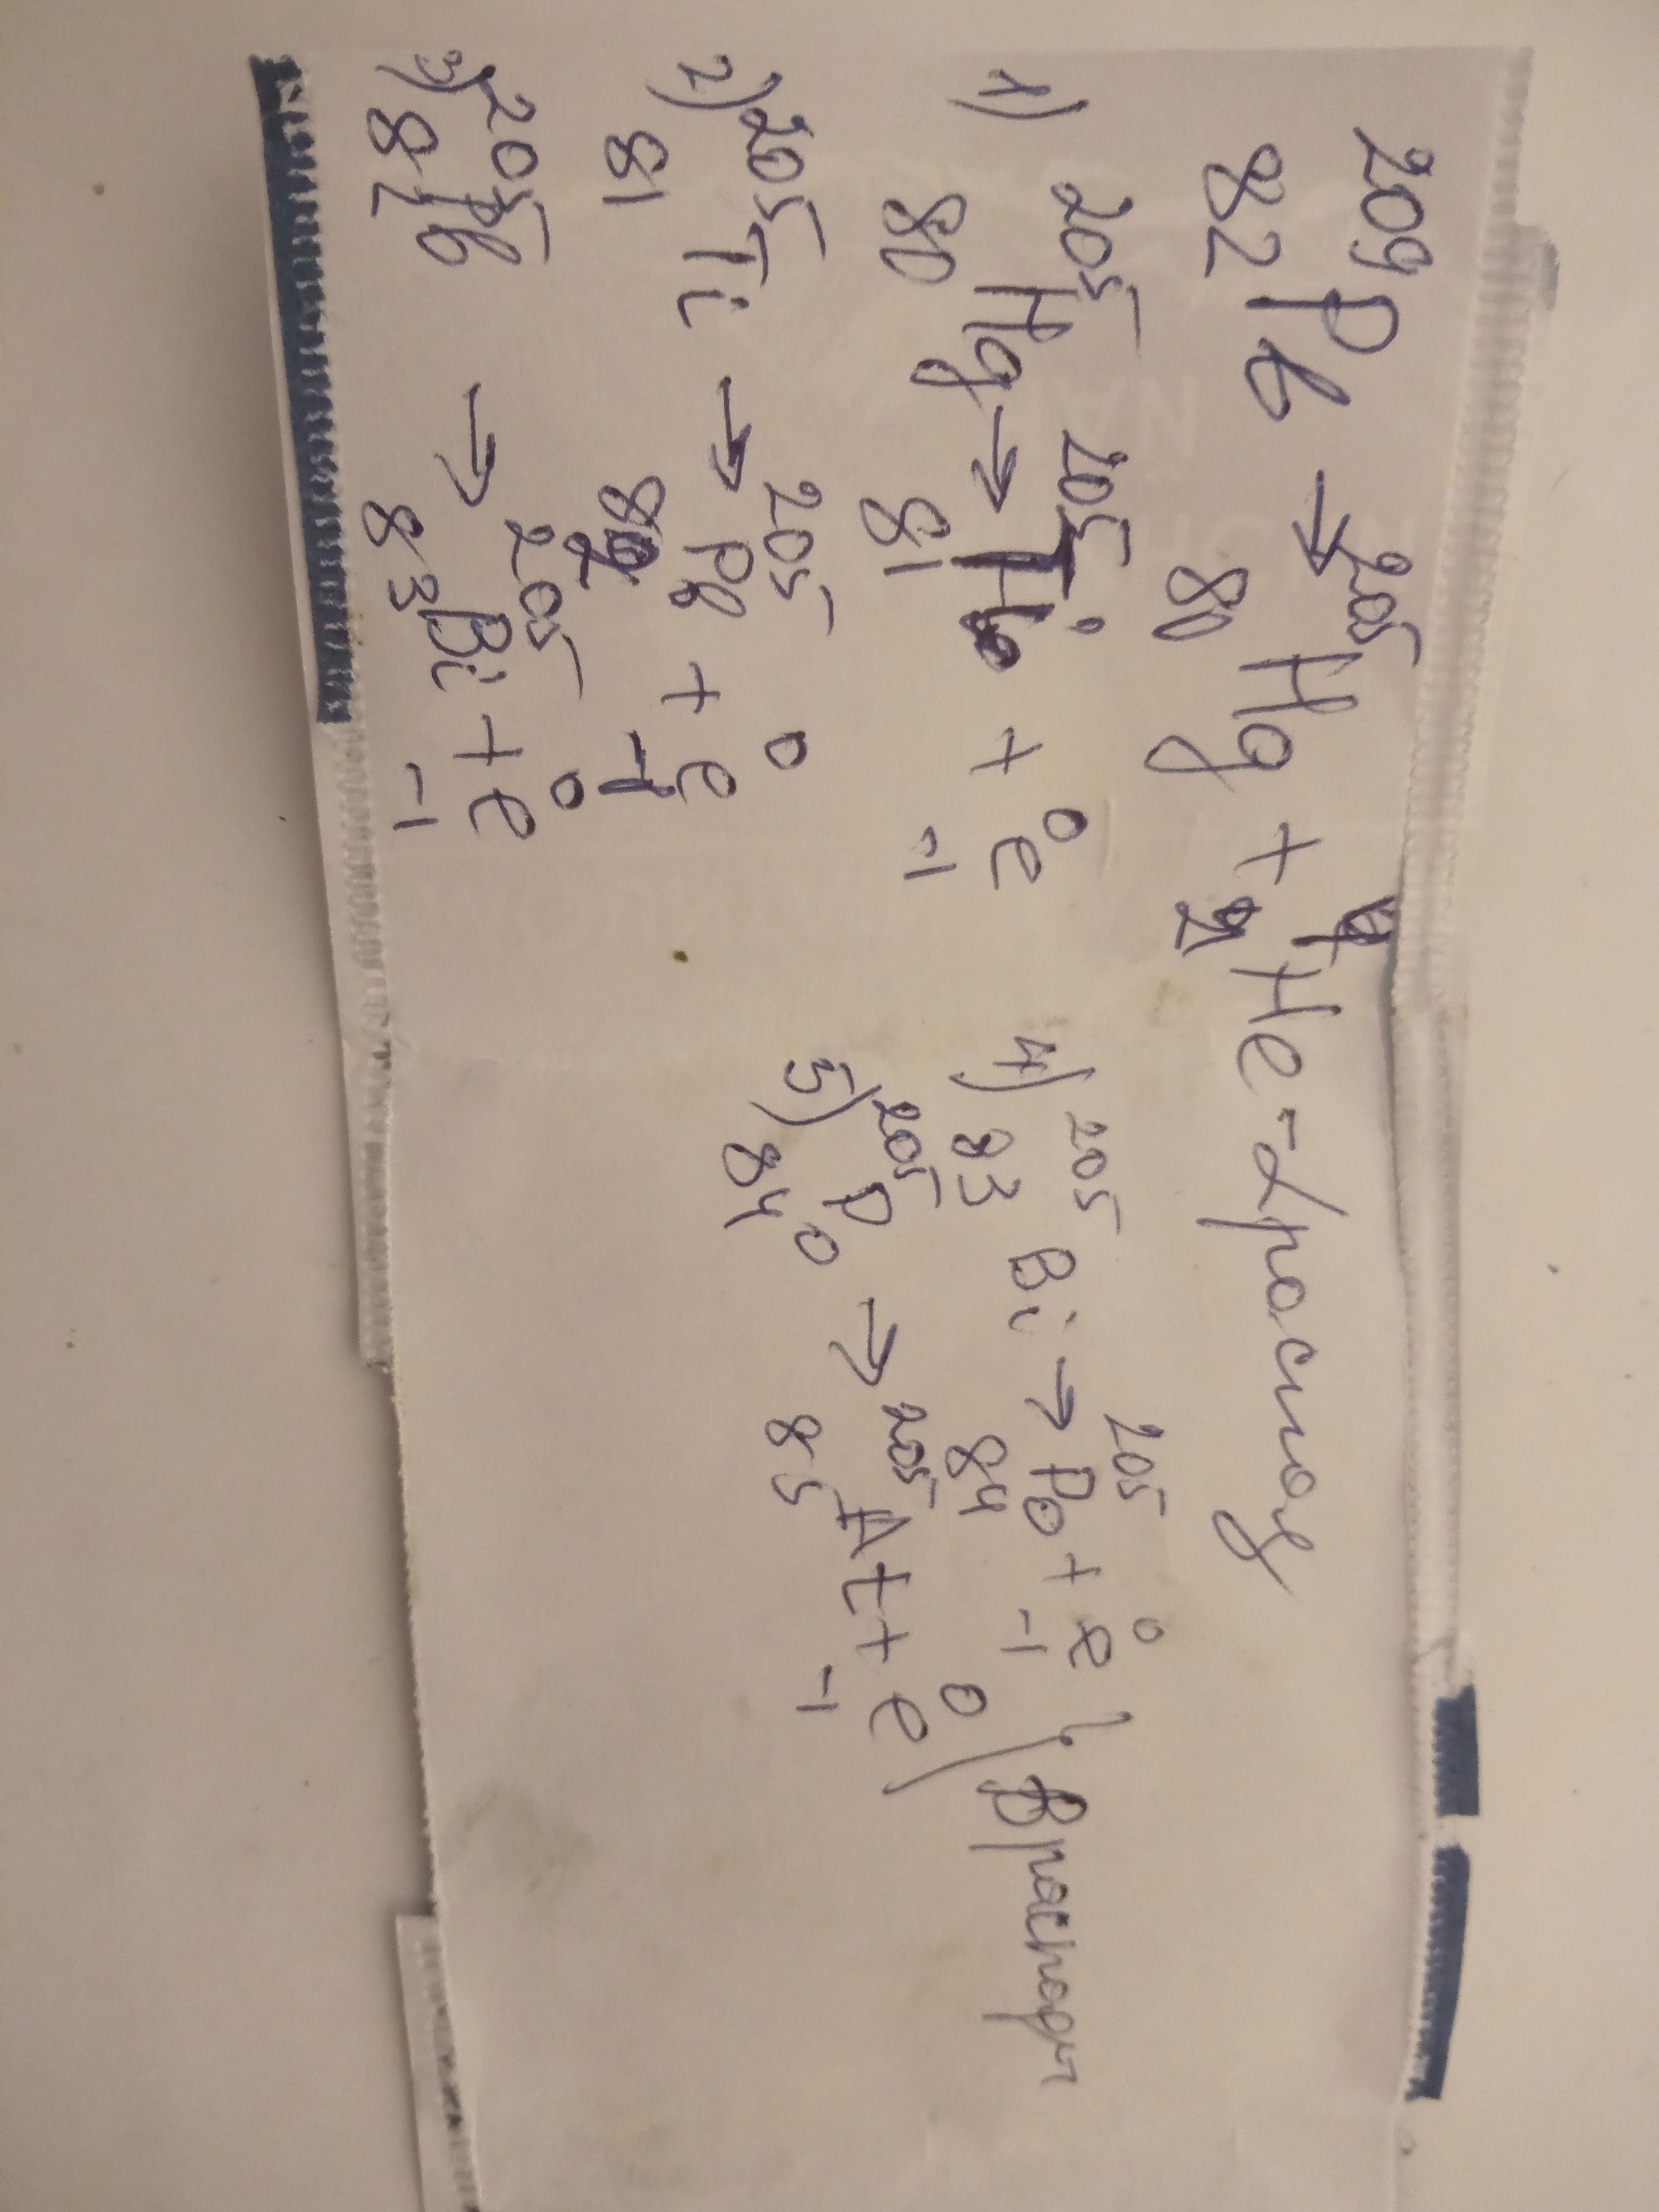 209 82 Pb → 205 80 Hg + 4 2 He - α распад
1) 205 80 Hg → 205 81 Ti + 0 -1 e
2) 205 81 Ti → 205 82 Pb + 0 -1 e
3) 205 82 Pb → 205 83 Bi + 0 -1 e
4) 205 83 Bi → 205 84 Po + 0 -1 e
5) 205 84 Po → 205 85 At + 0 -1 e
} β распады